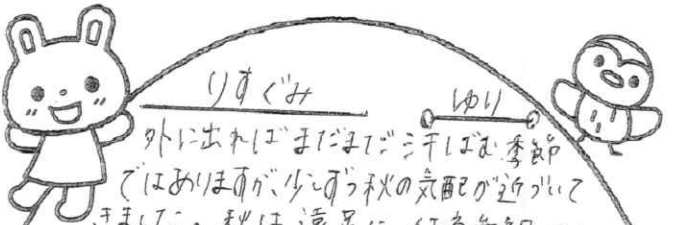 りすぐみ ゆり
外に出ればまだまだ汗ばむ季節
ではありますが、少しずつ秋の気配が近づいて
きました。秋は遠足に